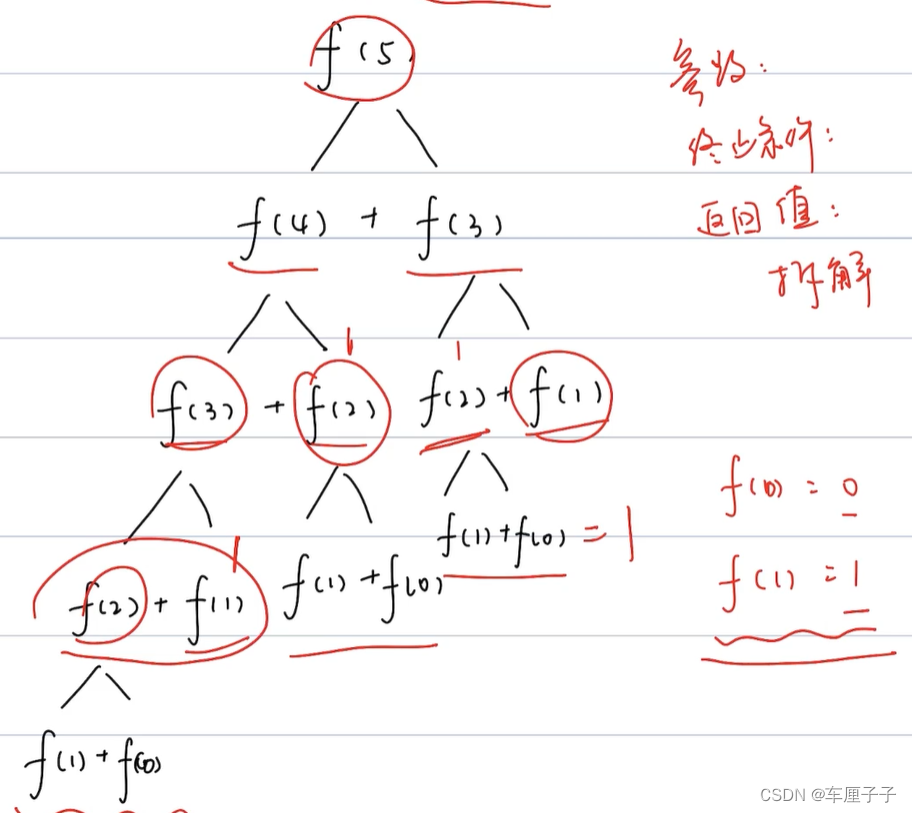 f(5)
参数:
终止条件:
f(4) + f(3)
返回值:
拆解
1
1
f(3) + f(2)
f(2) + f(1)
f(0) = 0
f(1) + f(0) = 1
1
f(2) + f(1)
f(1) + f(0)
f(1) = 1
f(1) + f(0)
CSDN @车厘子子